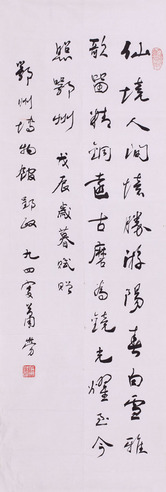 仙境人间境胜游阳春白雪雅
歌留精铜远古磨为镜光耀至今
照鄂州 戊辰岁暮赋赠
鄂州博物馆郢政 九四叟萧劳